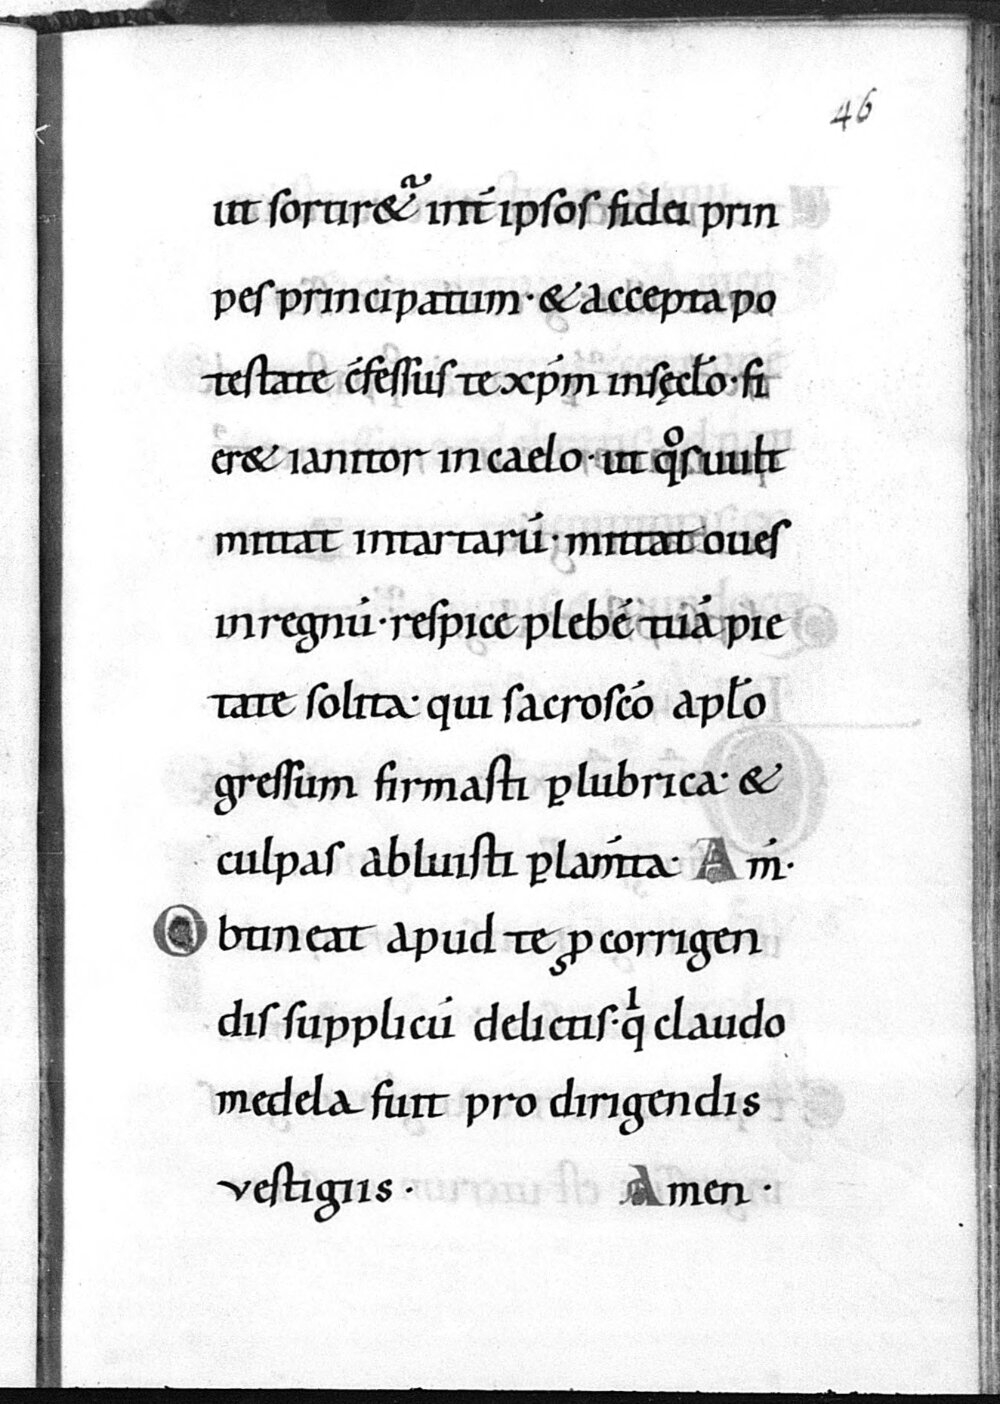 46
ut sortir&ᷓ int̄ ipsos fidei prin
pes principatum · & accepta po
testate c̄fessus te xp̄m in sęcl̄o · fi
er& ianitor in caelo · ut qͦs uult
mittat in tartarū · mittat oues
in regnū · respice plebē tuā pie
tate solita · qui sacroscō apl̄o
gressum firmasti ꝑ lubrica · &
culpas abluisti ꝑ lam̄ta · Am̄ ·
Obtineat apud te ꝓ corrigen
dis supplicū delictis · qͥ claudo
medela fuit pro dirigendis
vestigiis · Amen ·